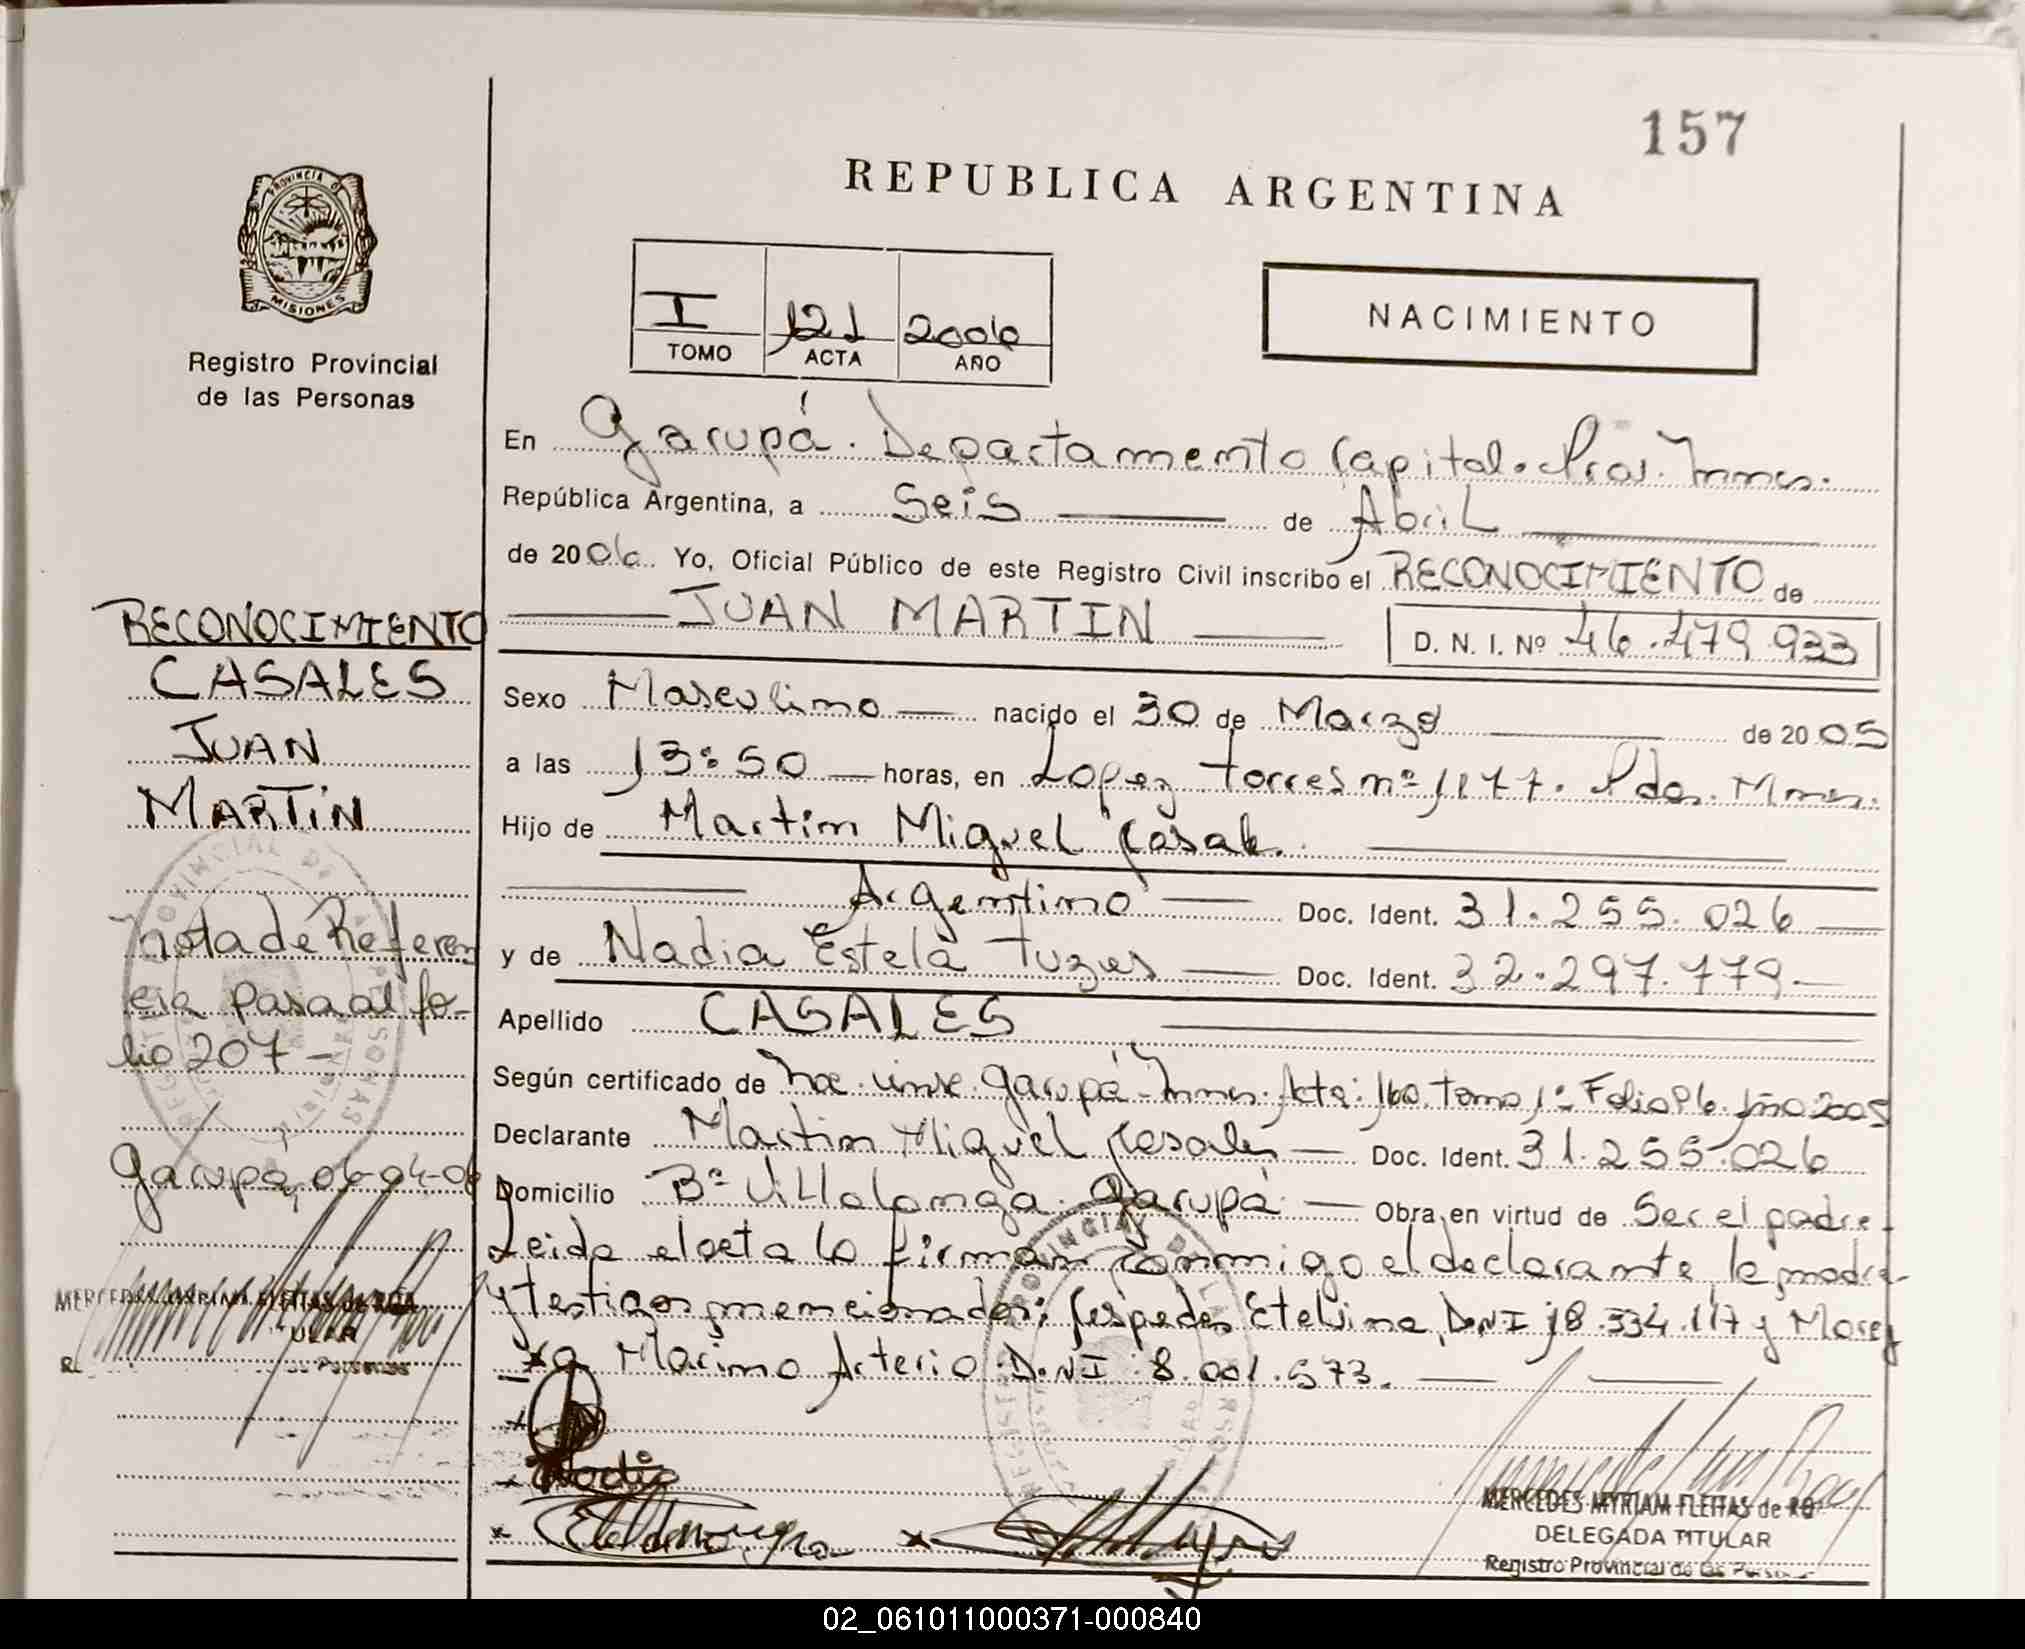 157
REPUBLICA ARGENTINA
PROVINCIA DE
MISIONES
Registro Provincial
de las Personas
I 121 2006
TOMO ACTA AÑO
NACIMIENTO
En Garupá. Departamento Capital.
República Argentina, a Seis de Abril
de 2006. Yo, Oficial Público de este Registro Civil inscribo el RECONOCIMIENTO de
JUAN MARTIN D. N. I. Nº 46.479.933
Sexo Masculino nacido el 30 de Marzo de 2005
a las 13:50 horas, en Lopez Torres nº 1177. Pdas. Mnes.
Hijo de Martin Miguel Casales
Argentino Doc. Ident. 31.255.026
y de Nadia Estela Doc. Ident. 32.297.779
Apellido CASALES
Según certificado de Garupá Mnes. Acta: 160. Tomo 1º Folio 96. Año 2005
Declarante Martin Miguel Casales Doc. Ident. 31.255.026
Domicilio Bº Villalonga. Garupá Obra en virtud de Ser el padre.
Leida el acta la firman conmigo el declarante, la madre
y testigos mencionados: Cespedes Etelvina, D.N.I 18.334.117 y
Maximo Arterio D.N.I 8.001.573.
RECONOCIMIENTO
CASALES
JUAN
MARTIN
Nota de Referen
cia pasa al fo-
lio 207
Garupá, 06-04-06
MERCEDES MYRIAM FLEITAS de
DELEGADA TITULAR
Registro Provincial de las
02_061011000371-000840